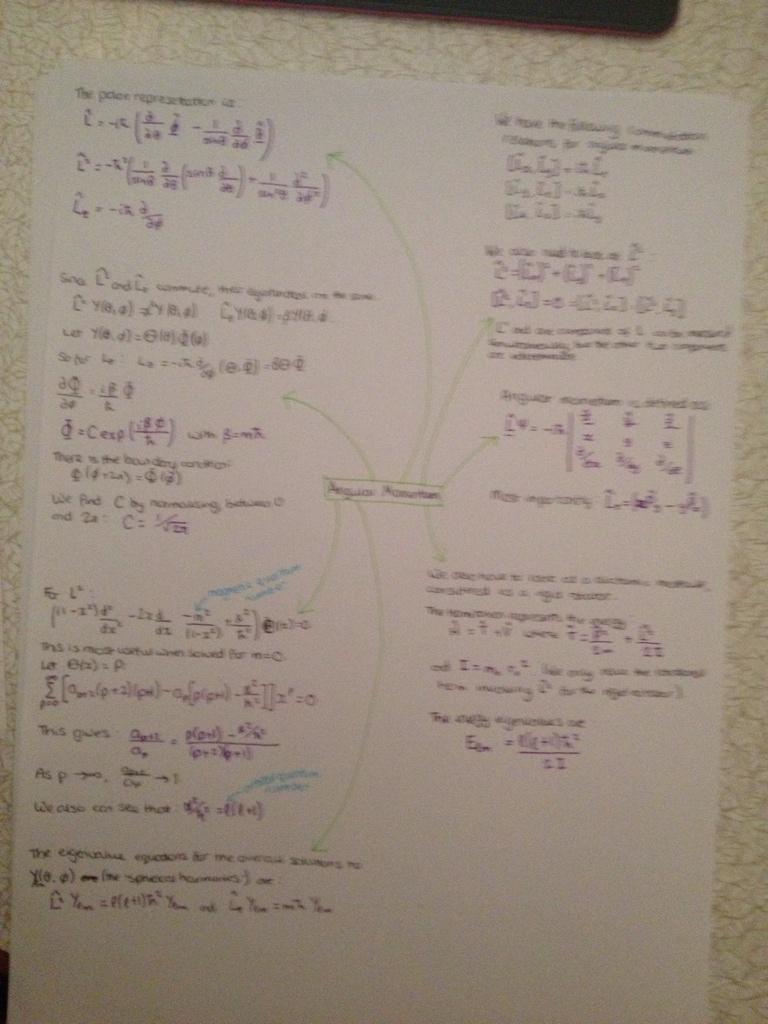 The polar representation is:
L̂ = -iħ (∂/∂θ φ̂ - 1/sinθ ∂/∂φ θ̂)
L̂² = -ħ² (1/sinθ ∂/∂θ (sinθ ∂/∂θ) + 1/sin²θ ∂²/∂φ²)
L̂z = -iħ ∂/∂φ
Since L̂² and L̂z commute, their eigenfunctions are the same.
L̂² Y(θ,φ) = α²Y(θ,φ) L̂z Y(θ,φ) = βY(θ,φ)
Let Y(θ,φ) = Θ(θ)Φ(φ)
So for Lz: Lz = -iħ ∂/∂φ (Θ,Φ) = βΘΦ
∂Φ/∂φ = iβ/ħ Φ
Φ = C exp(iβφ/ħ) with β = mħ
There is the boundary condition:
Φ(φ+2π) = Φ(φ)
We find C by normalising between 0
and 2π: C = 1/√2π
For L²:
((1-x²) d²/dx² - 2x d/dx - m²/(1-x²) + α²/ħ²) Θ(x) = 0
magnetic quantum
number
This is most useful when solved for m=0.
Let Θ(x) = P:
∞Σp=0 [aₚ₊₂(p+2)(p+1) - aₚ[p(p+1) - α²/ħ²]] xᵖ = 0
This gives: aₚ₊₂/aₚ = p(p+1) - α²/ħ² / (p+2)(p+1)
As p → ∞, aₚ₊₂/aₚ → 1
quantum
number
We also can see that: α²/ħ² = ℓ(ℓ+1)
The eigenvalue equations for the overall solutions to
Y(θ,φ) (the 'spherical harmonics') are:
L̂² Yℓm = ℓ(ℓ+1)ħ² Yℓm and L̂z Yℓm = mħ Yℓm
Angular Momentum
We have the following commutation
relations for angular momentum:
[L̂x, L̂y] = iħL̂z
[L̂y, L̂z] = iħL̂x
[L̂z, L̂x] = iħL̂y
We also need to look at L̂²:
L̂² = [L̂x]² + [L̂y]² + [L̂z]²
L² and one component of L can be measured
simultaneously, but the other two components
are indeterminate
Angular momentum is defined as:
Most importantly: L̂z =
We also have to look at a diatomic molecule,
considered as a rigid rotator.
The Hamiltonian represents the energy:
Ĥ = T̂ + V̂ where T̂ = p̂²/2m + L̂²/2I
and I = m₀ r₀². (We only have the rotational
term involving L̂² for the rigid rotator).
The energy eigenvalues are:
Eℓm = ℓ(ℓ+1)ħ²/2I